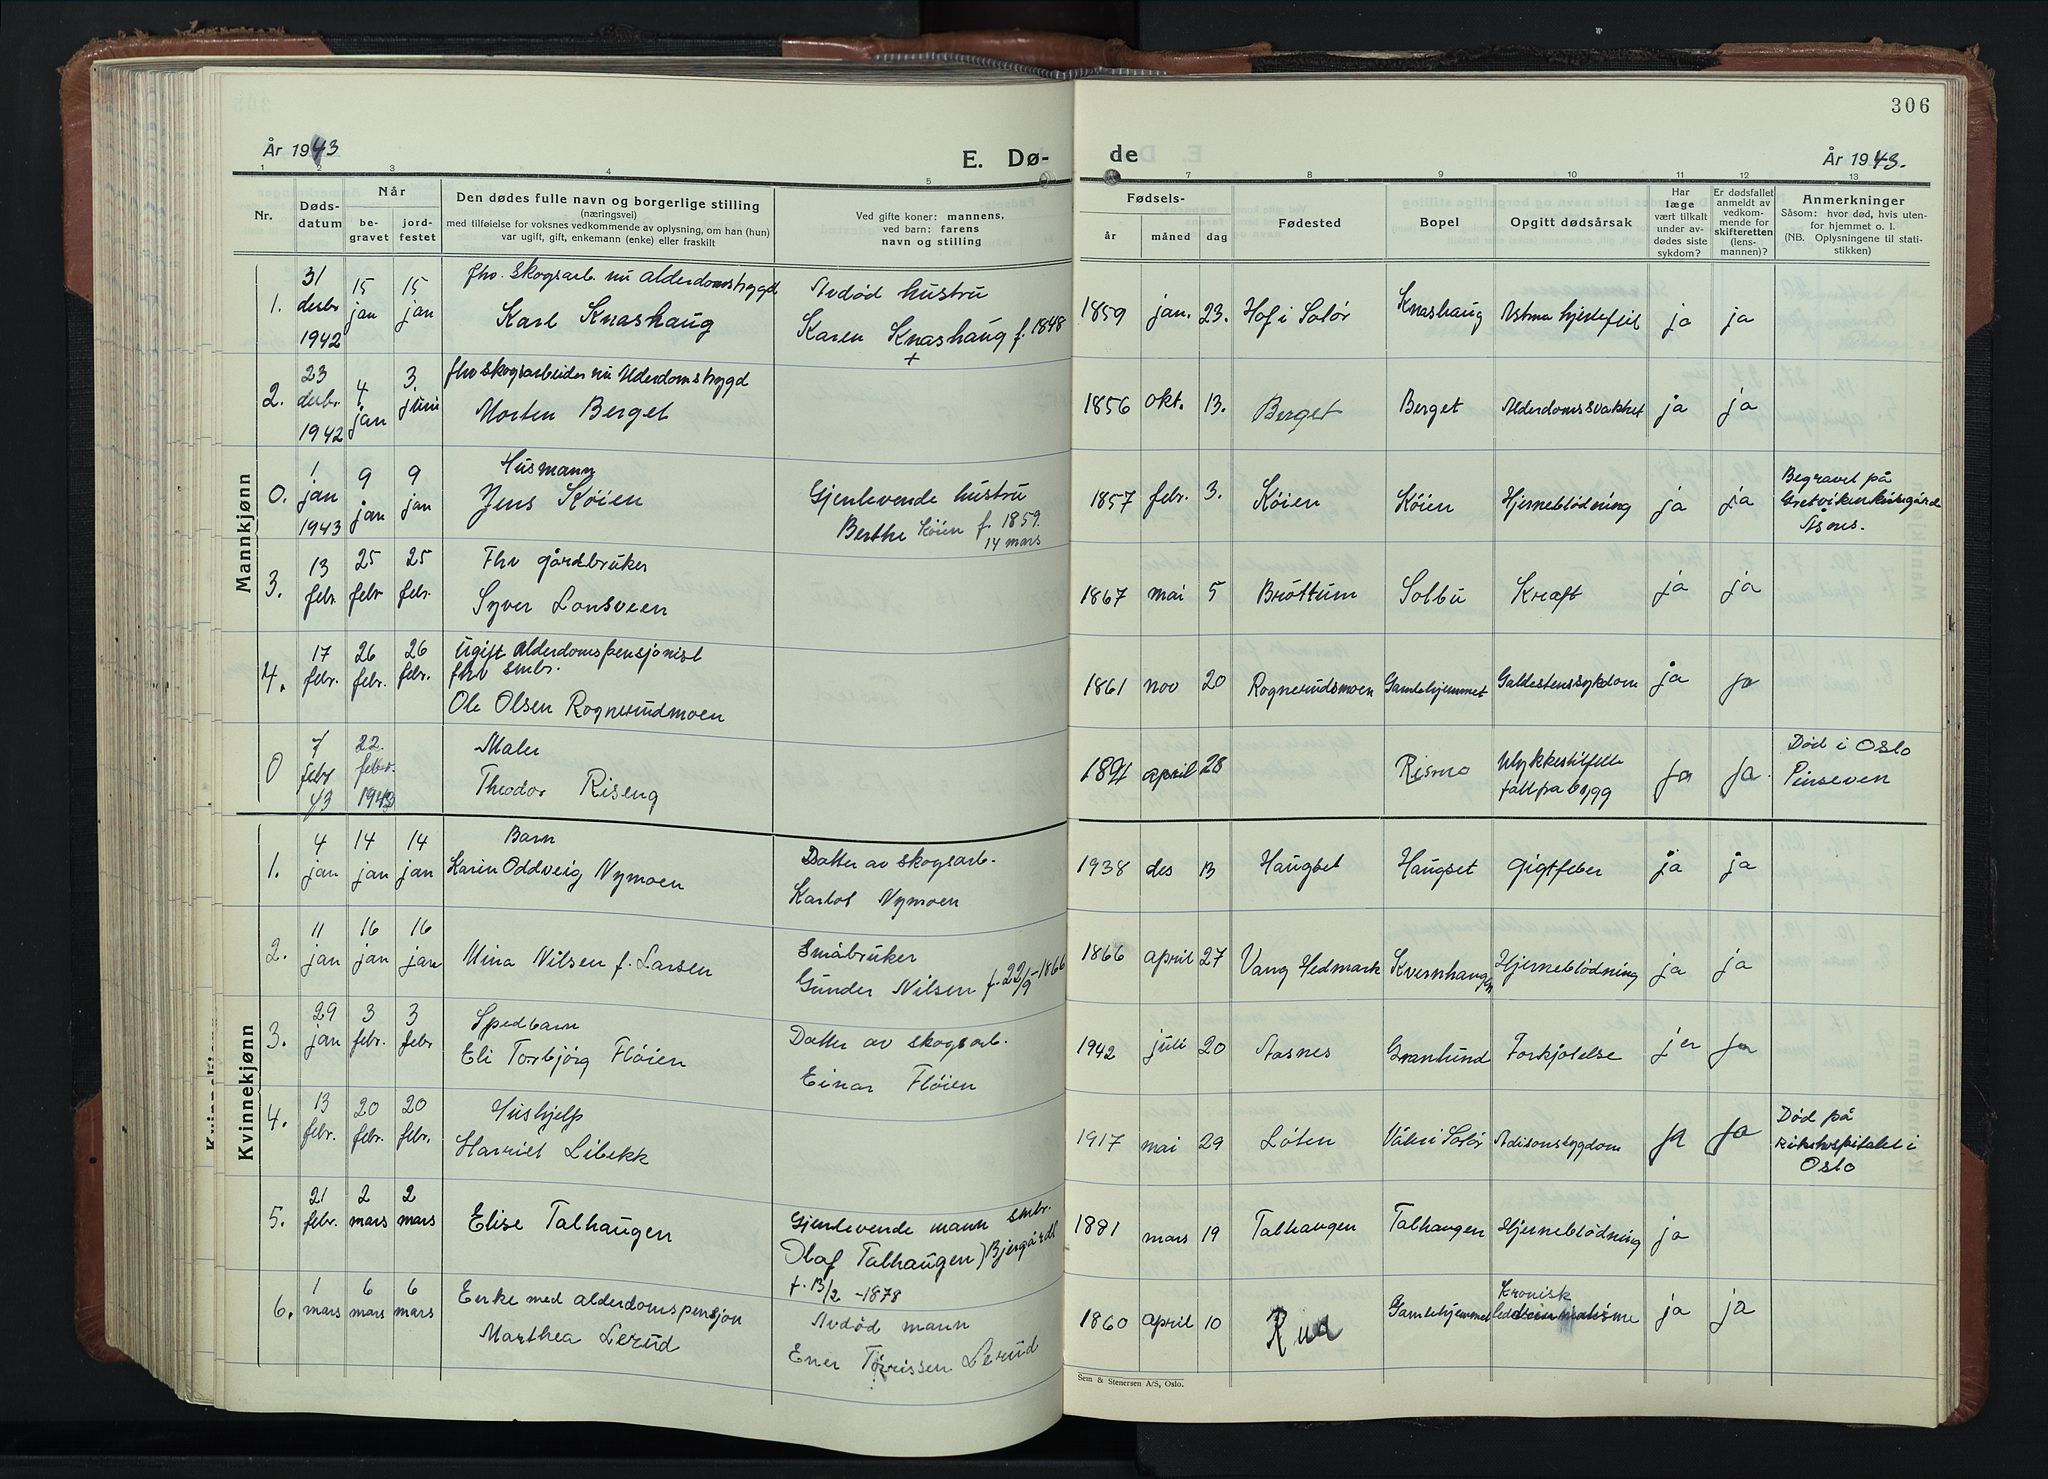 306
År 1943
E. Dø-
de
År 1943.
1 2 3 4 5 7 8 9 10 11 12 13
Nr.
Døds-
datum
Når
be-
gravet
jord-
festet
Den dødes fulle navn og borgerlige stilling
(næringsvei)
med tilføielse for voksnes vedkommende av oplysning, om han (hun)
var ugift, gift, enkemann (enke) eller fraskilt
Ved gifte koner: mannens,
ved barn: farens
navn og stilling
Fødsels-
år
måned
dag
Fødested
Bopel
Opgitt dødsårsak
Har
læge
vært tilkalt
under av-
dødes siste
sykdom?
Er dødsfallet
anmeldt av
vedkom-
mende for
skifteretten
(lens-
mannen)?
Anmerkninger
Såsom: hvor død, hvis uten-
for hjemmet o. l.
(NB. Oplysningene til stati-
stikken)
Mannkjønn
1.
31
desbr
1942
15
jan
15
jan
fhv. skogsarb. nu alderdomstrygd
Karl Knashaug
Avdød hustru
Karen Knashaug f. 1848
+
1859 jan. 23. Hof i Solør Knashaug Astma hjertefeil ja ja
2.
23
desbr
1942
4.
jan
3.
juni
fhv skogsarbeider nu Alderdomstrygd
Morten Berget
1856 okt. 13. Berget Berget Alderdomssvakhet ja ja
0.
1
jan
1943
9
jan
9
jan
Husmann
Jens Køien
Gjenlevende hustru
Berthe Køien f. 1859.
14 mars
1857 febr. 3. Køien Køien Hjerneblødning ja ja
Begravet på
Åsnes.
3.
13
febr.
25
febr
25
febr.
Fhv gårdbruker
Syver Lonsveen
1867 mai 5 Brøttum Solbu Kræft ja ja
4.
17
febr.
26
febr.
26
febr.
Ugift Alderdomspensjonist
fhv smbr.
Ole Olsen Rognerudmoen
1861 nov 20 Rognerudsmoen Gamlehjemmet Galdestenssykdom ja ja
0
7
febr
43
22.
febr.
1943
Maler
Theodor Riseng
1891 april 28 Rismo Ulykkestilfelle
fall fra bygg
ja ja.
Død i Oslo
Kvinnekjønn
1.
4
jan
14
jan
14
jan
Barn
Karin Oddveig Nymoen
Datter av skogsarb.
Karlot Nymoen
1938 des 13 Haugset Haugset Gigtfeber ja ja
2.
11
jan
16
jan
16
jan
Mina Nilsen f. Larsen
Småbruker
Gunder Nilsen f. 22/9-1866
1866 april 27 Vang Hedmark Kvernhaugen Hjerneblødning ja ja
3.
29
jan
3
febr.
3
febr
Spedbarn
Eli Torbjörg Fløien
Datter av skogsarb.
Einar Fløien
1942 juli 20 Aasnes Granlund Forkjølelse ja
4.
13
febr.
20
febr.
20
febr.
Hushjelp
Harriet Libekk
1917 mai 29 Løten Våler i Solør Adisonsygdom ja ja
Død på
Rikshospitalet i
Oslo
5.
21
febr.
2
mars
2
mars
Elise Talhaugen
Gjenlevende mann smbr.
Olaf Talhaugen)
f. 13/2 -1878
1881 mars 19 Talhaugen Talhaugen Hjerneblødning ja
6.
1
mars
6
mars
6
mars
Enke med alderdomspensjon
Marthea Lerud
Avdød mann
Ener Tørrissen Lerud
1860 april 10 Rua Gamlehjemmet Kronisk
leddreumatisme
ja ja
Sem & Stenersen A/S, Oslo.